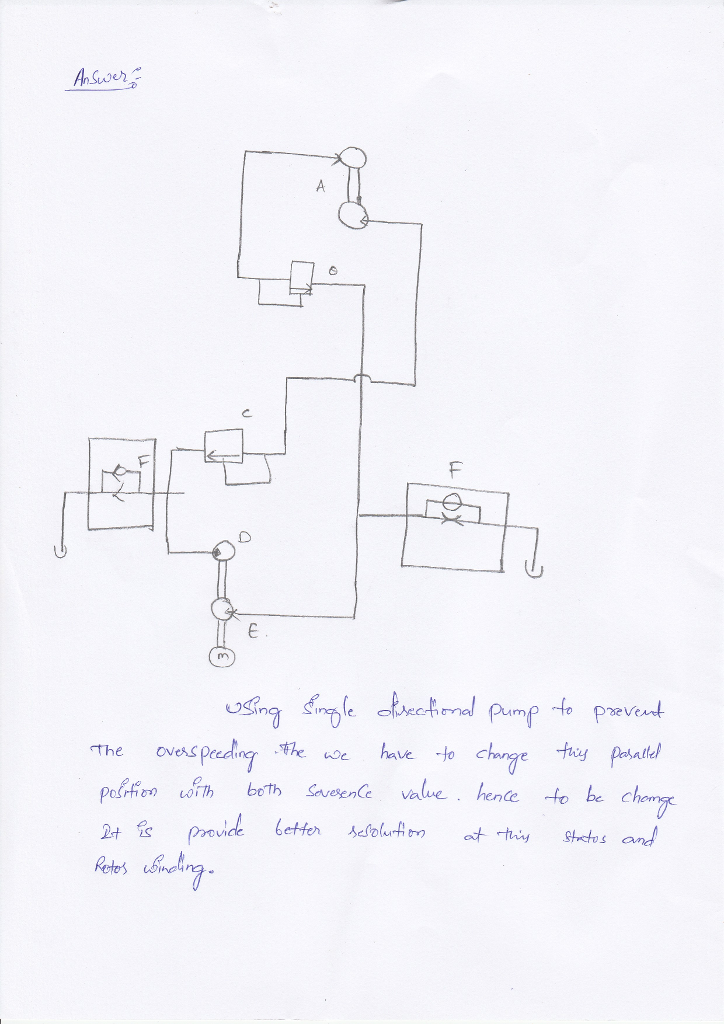 Answer:-
A
B
C
F
F
D
E.
m
Using Single directional pump to prevent
The overspeeding. the we have to change this parallel
position with both severence value. hence to be change
It is provide better resolution at this stator and
Rotor winding.